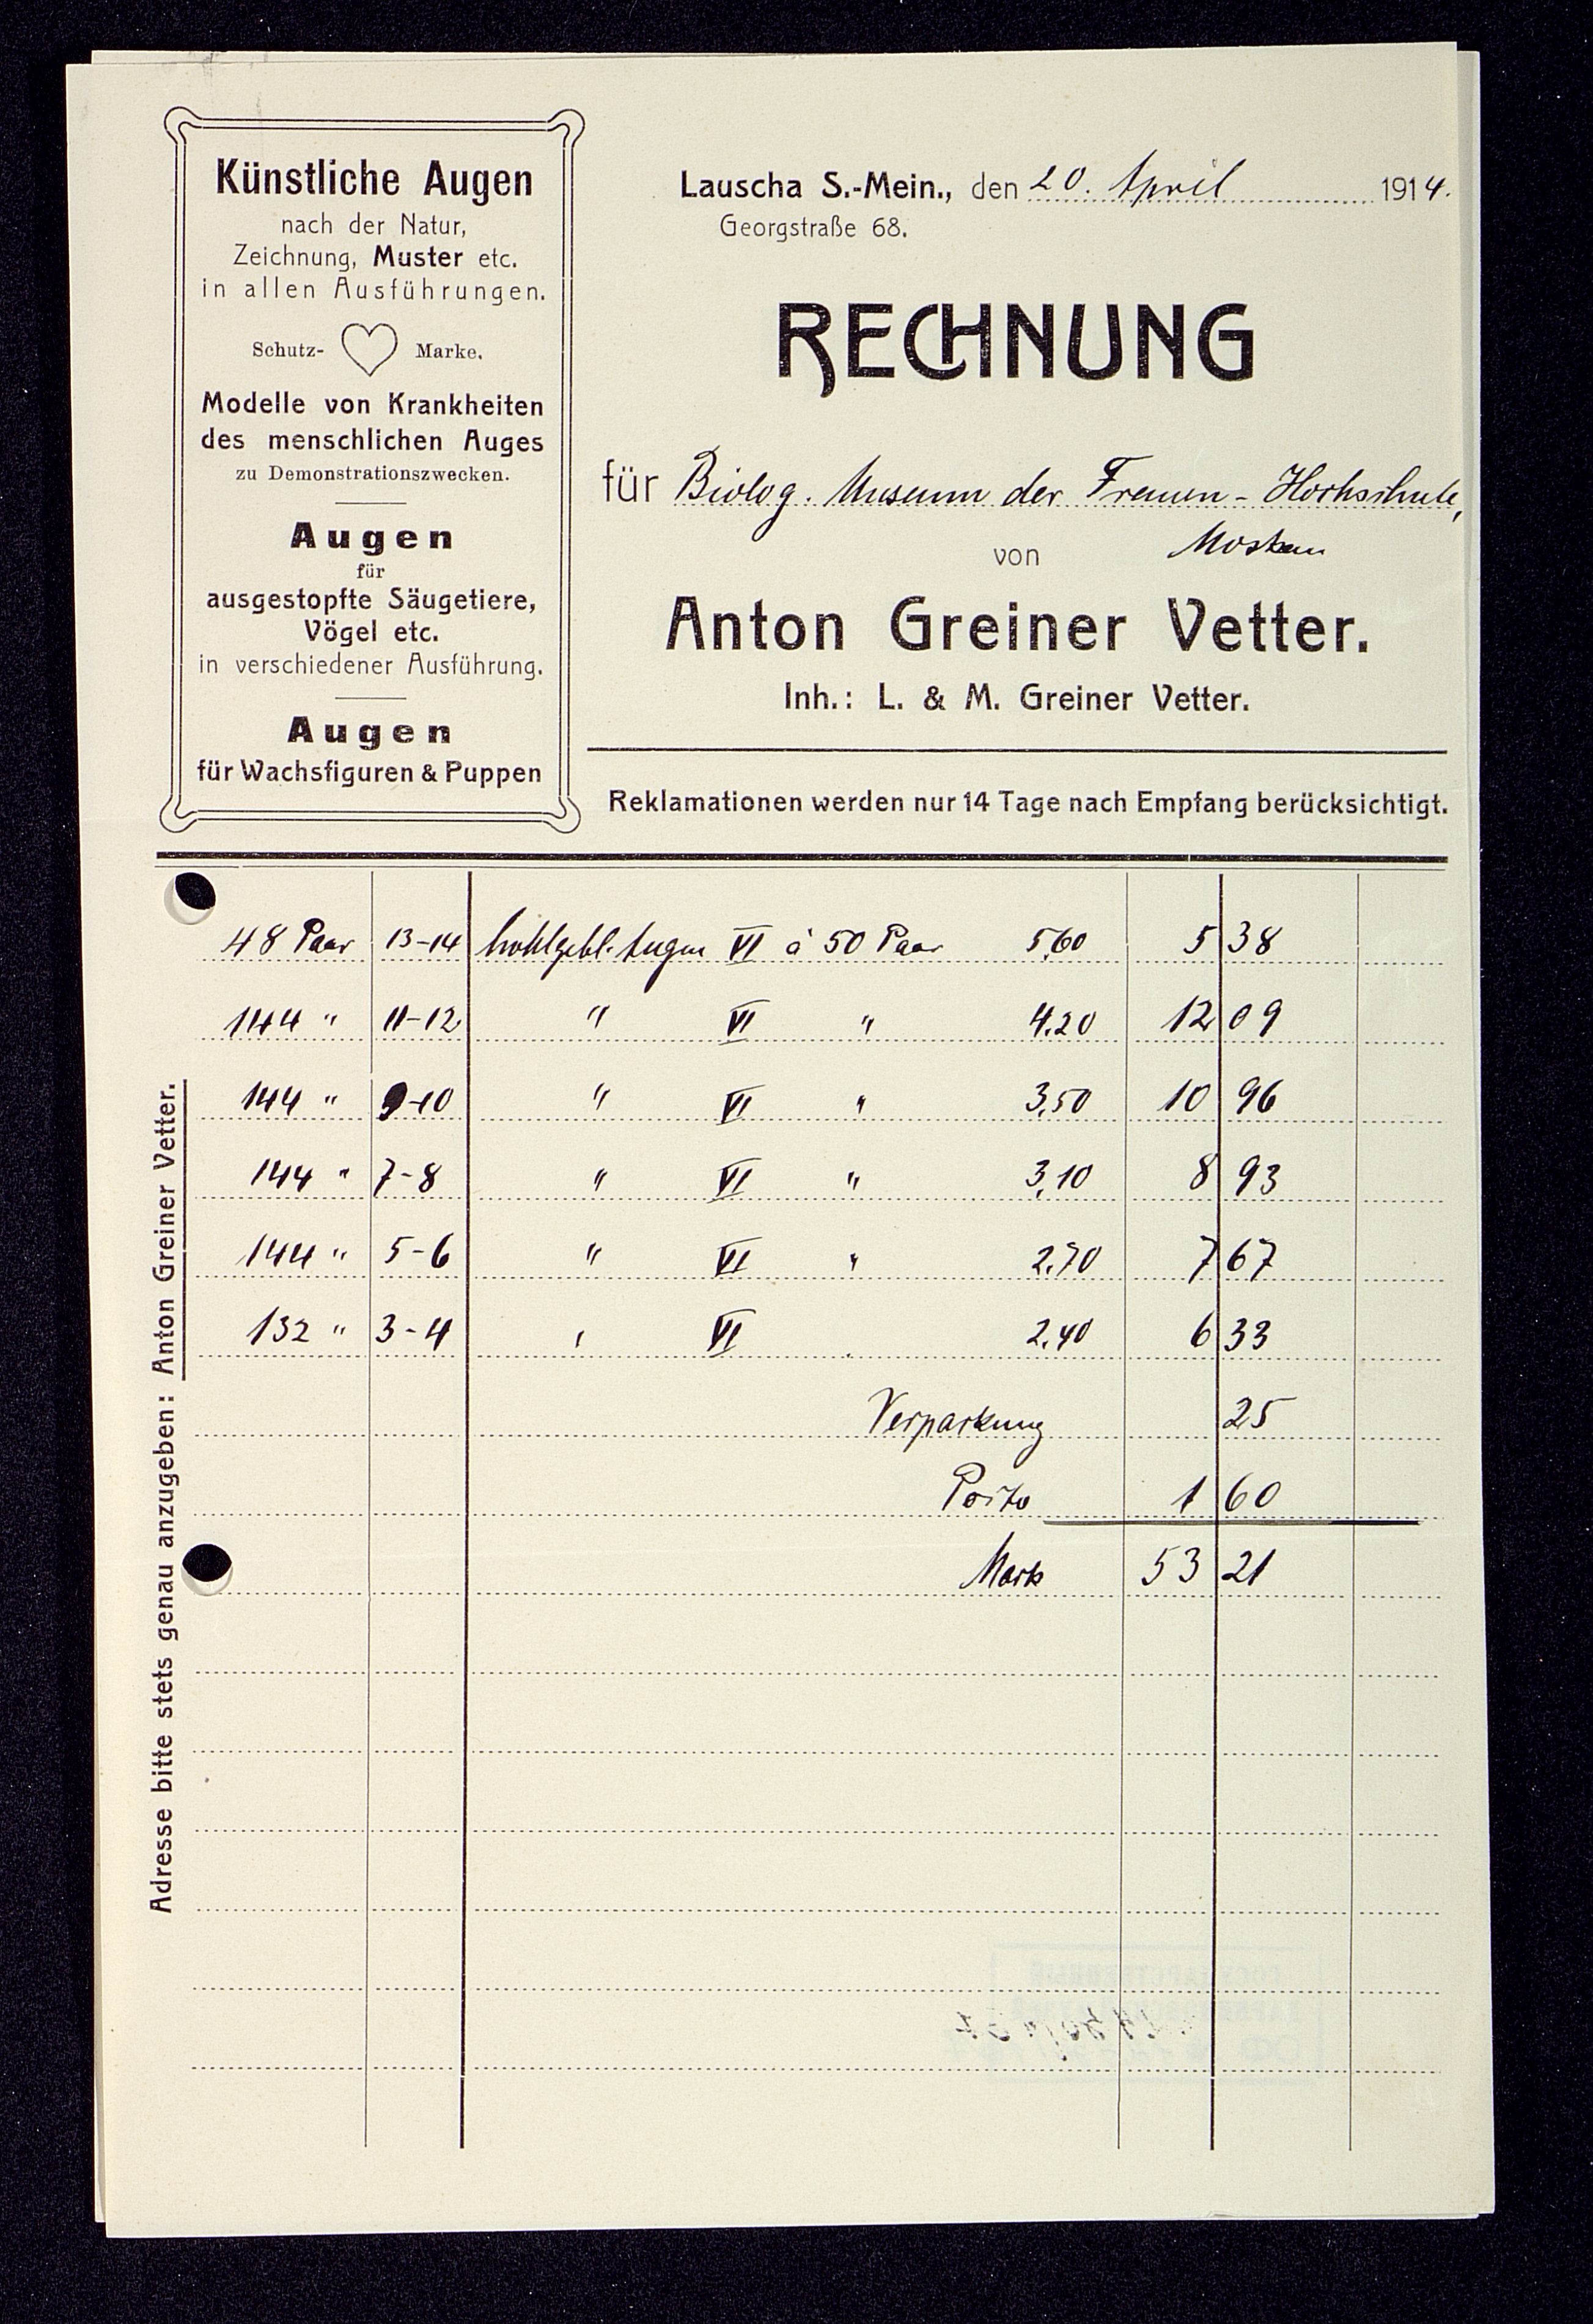 Künstliche Augen
nach der Natur,
Zeichnung, Muster etc.
in allen Ausführungen.
Schutz- Marke.
Modelle von Krankheiten
des menschlichen Auges
zu Demonstrationszwecken.
Augen
für
ausgestopfte Säugetiere,
Vögel etc.
in verschiedener Ausführung.
Augen
für Wachsfiguren & Puppen
Lauscha S.-Mein., den 20. April 1914.
Georgstraße 68.
RECHNUNG
für Biolog. Museum der Frauen-Hochschule,
Moskau
von
Anton Greiner Vetter.
Inh.: L. & M. Greiner Vetter.
Reklamationen werden nur 14 Tage nach Empfang berücksichtigt.
48 Paar 13-14 hohlgebl. Augen VI à 50 Paar 5,60 5 38
144 " 11-12 " VI " 4.20 12 09
144 " 9-10 " VI " 3,50 10 96
144 " 7-8 " VI " 3,10 8 93
144 " 5-6 " VI " 2.70 7 67
132 " 3-4 " VI 2.40 6 33
Verpackung 25
Porto 1 60
Mark 53 21
Adresse bitte stets genau anzugeben: Anton Greiner Vetter.